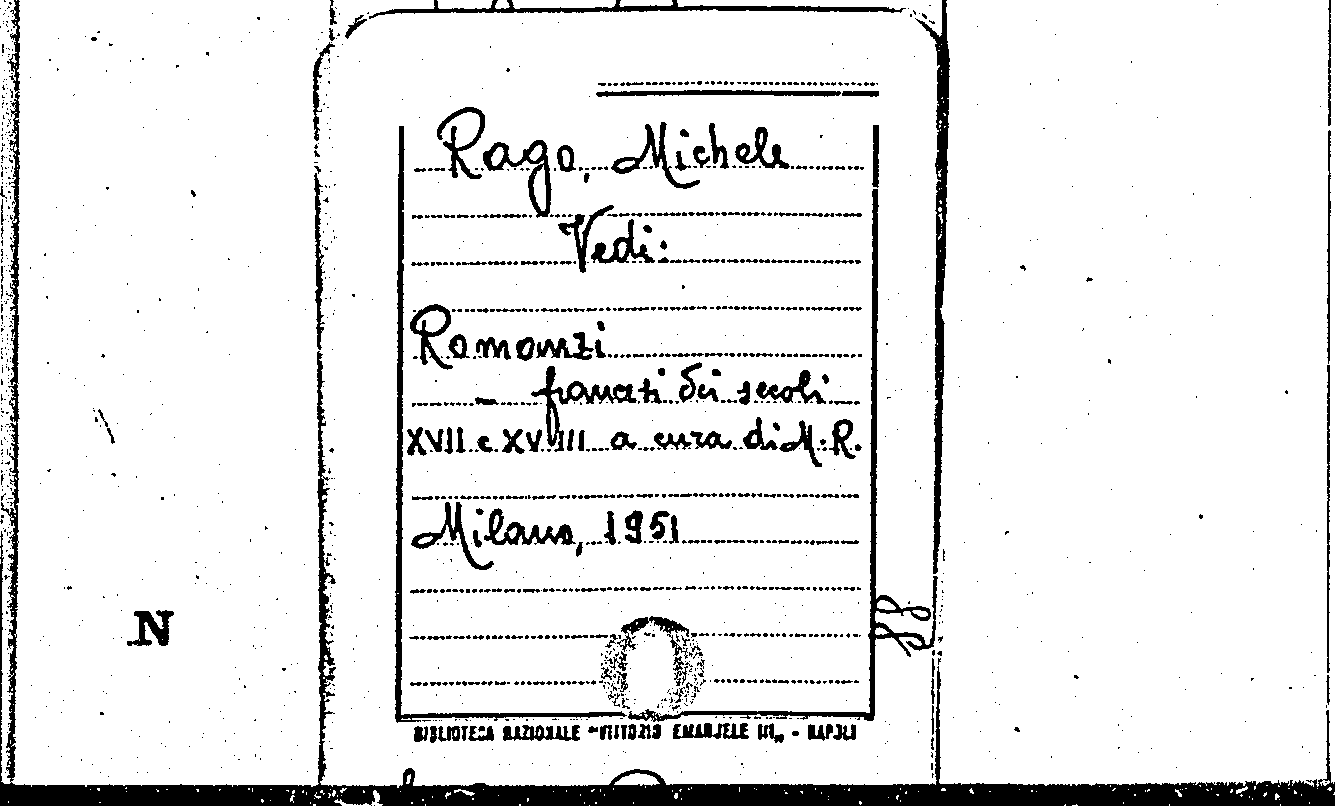 Rago, Michele
Vedi:
Romanzi
- francesi dei secoli
XVII e XVIII a cura di M.R.
Milano, 1951
N
BIBLIOTECA NAZIONALE "VITTORIO EMANUELE III„ - NAPOLI